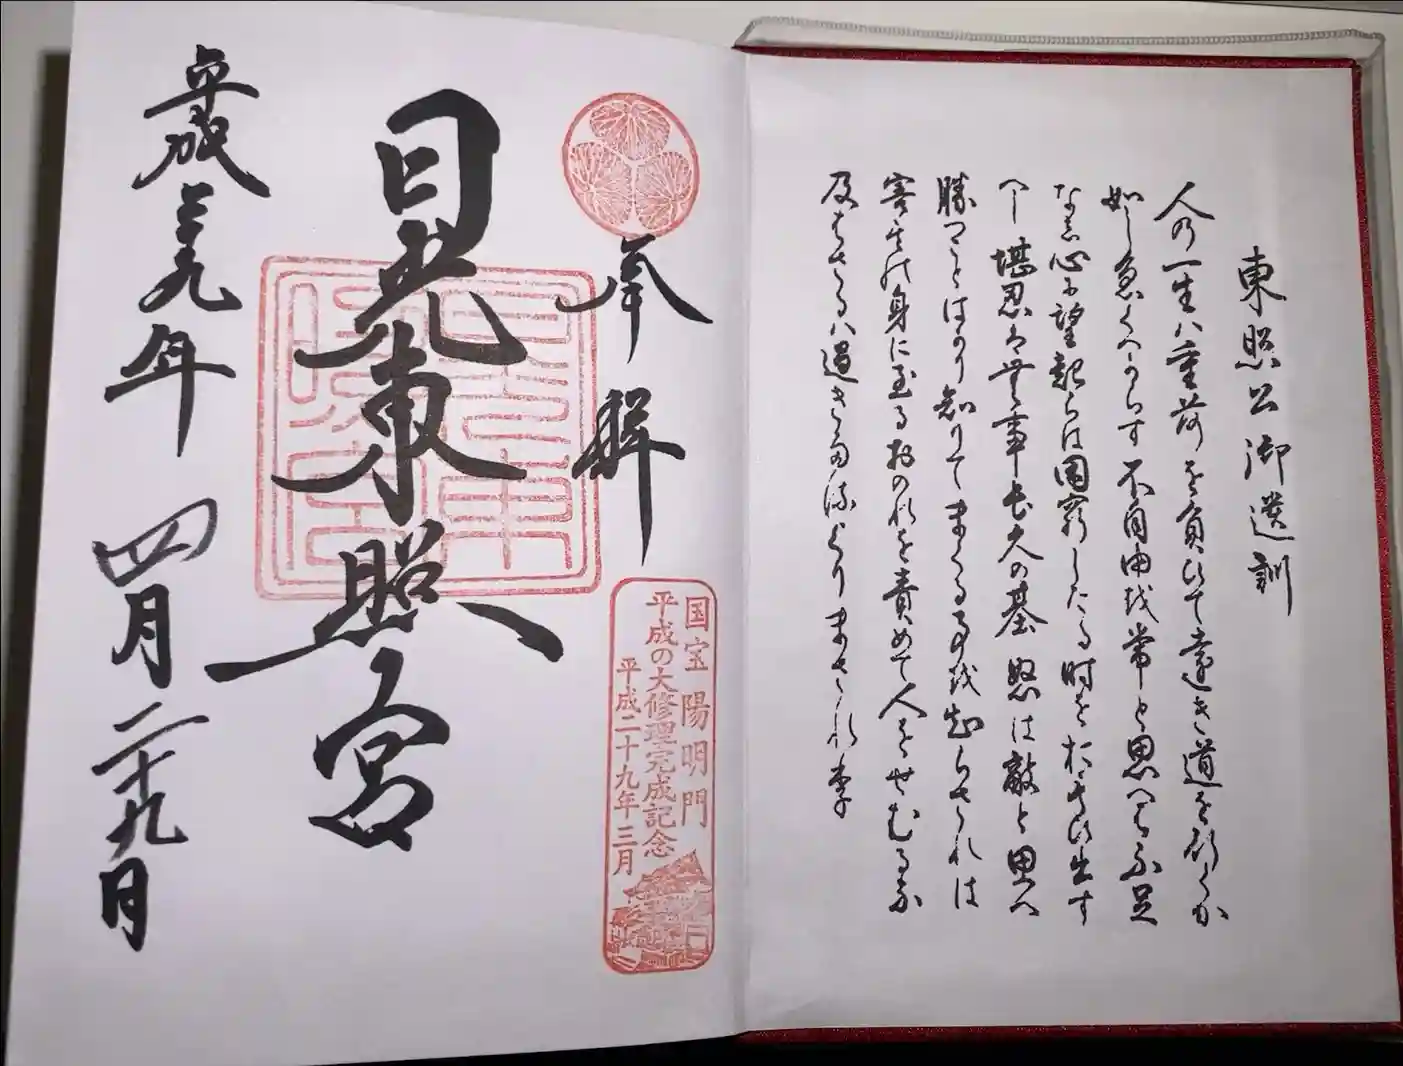 東照公御遺訓
人の一生ハ重荷を負ひて遠き道を行くか
如し急くへからす不自由を常と思へハ不足
なし心に望起らは困窮したる時をおもひ出す
へし堪忍は無事長久の基怒は敵と思へ
勝ことはかり知りてまくる事を知らされは
害其の身に至るおのれを責めて人をせむるな
及はさるハ過きたるよりまされり
奉拝
国宝陽明門
平成の大修理完成記念
平成二十九年三月
日光東照宮
平成二十九年四月二十九日